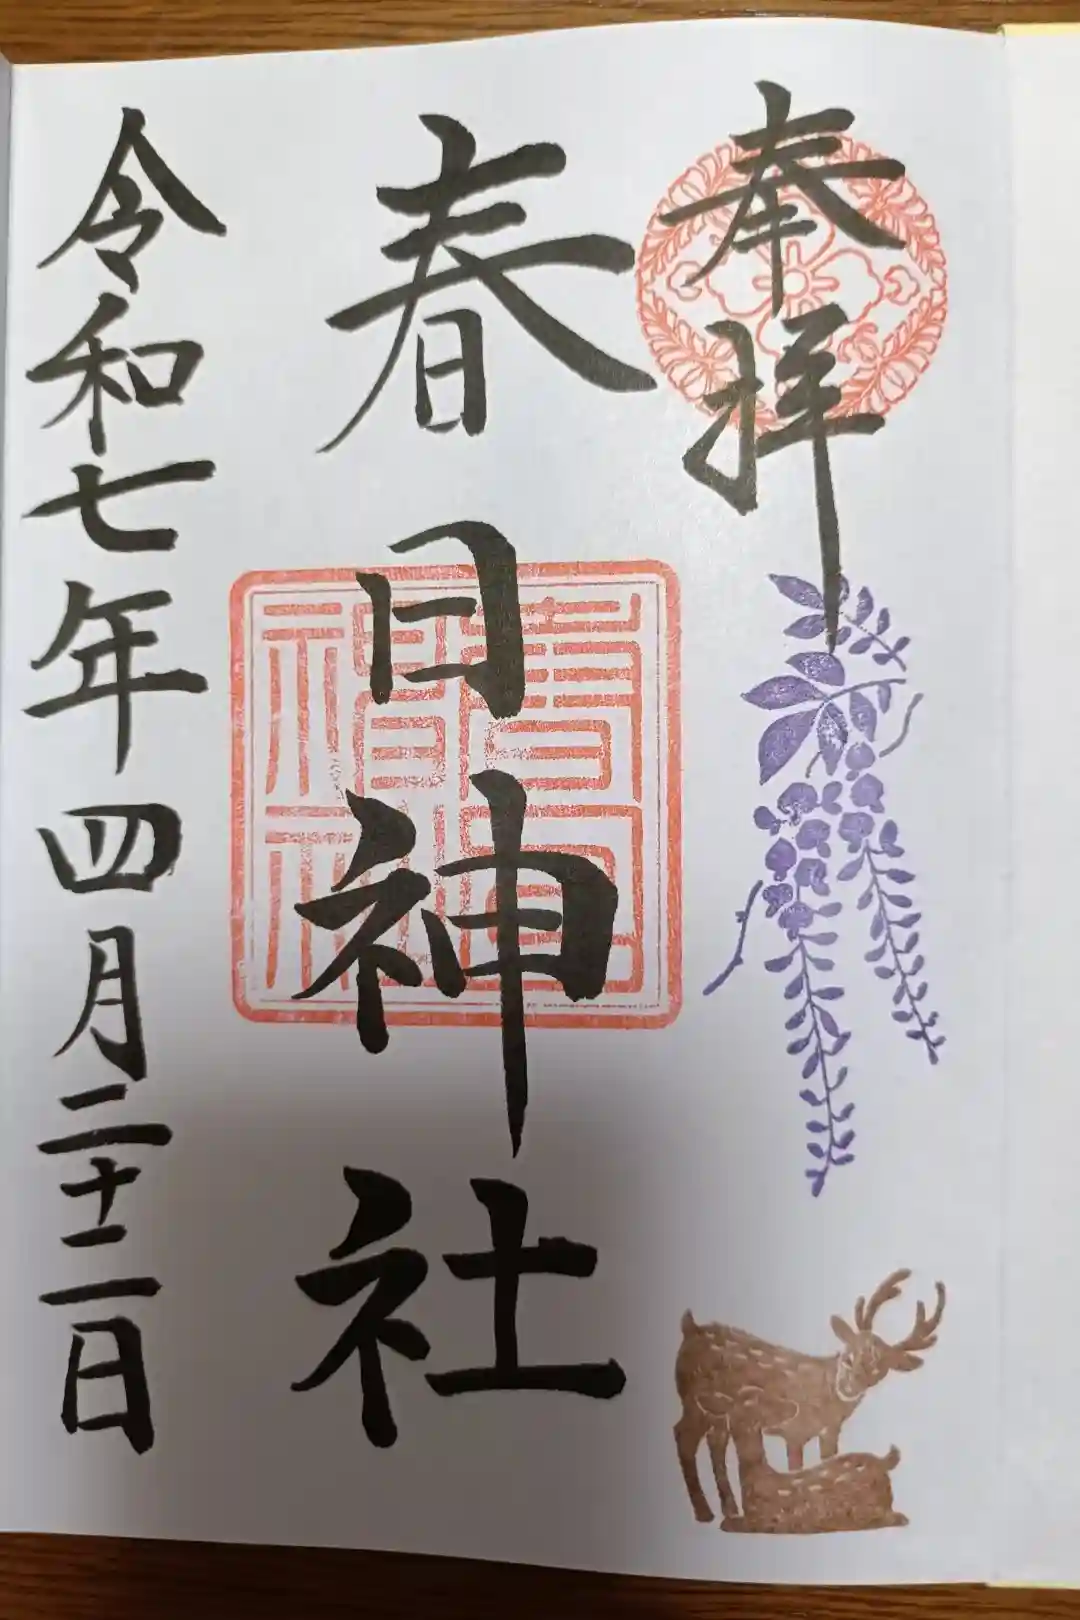 奉拝
春日神社
令和七年四月二十二日
春日神社